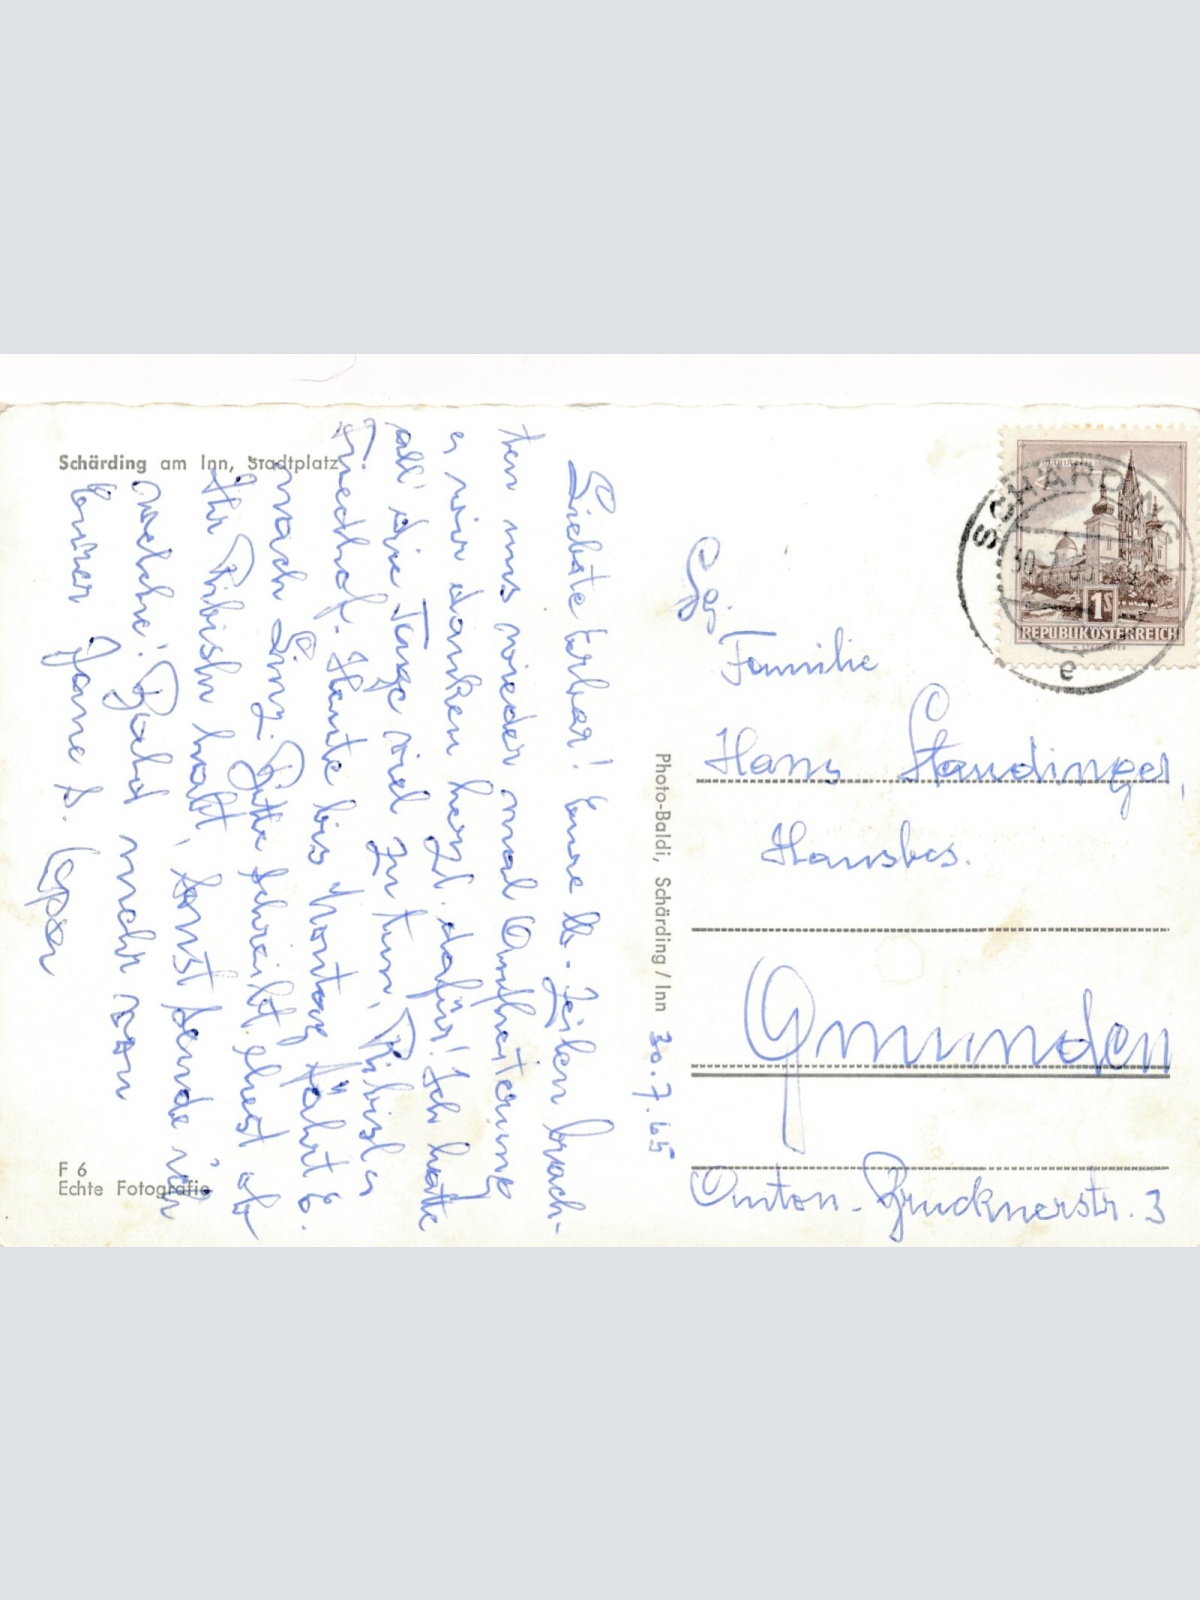 Schärding am Inn, Stadtplatz
Liebste Erbar! Eure lb. Zeilen brach-
ten uns wieder mal Aufheiterung
u wir danken herzl. dafür! Ich hatte
all' die Tage viel zu tun, Ribisl u
Friedhof. Heute bis Montag fährt E.
nach Linz. Bitte schreibt ehest ob
Ihr Ribisln habt, sonst sende ich
welche! Bald mehr von
Eurer
F 6
Echte Fotografie
Photo-Baldi, Schärding / Inn
30.7.65
SCHÄRDING
30.7.
e
MARIAZELL
1S
REPUBLIK ÖSTERREICH
Sg.
Familie
Hans Staudinger,
Hausbes.
Gmunden
Anton-Brucknerstr. 3